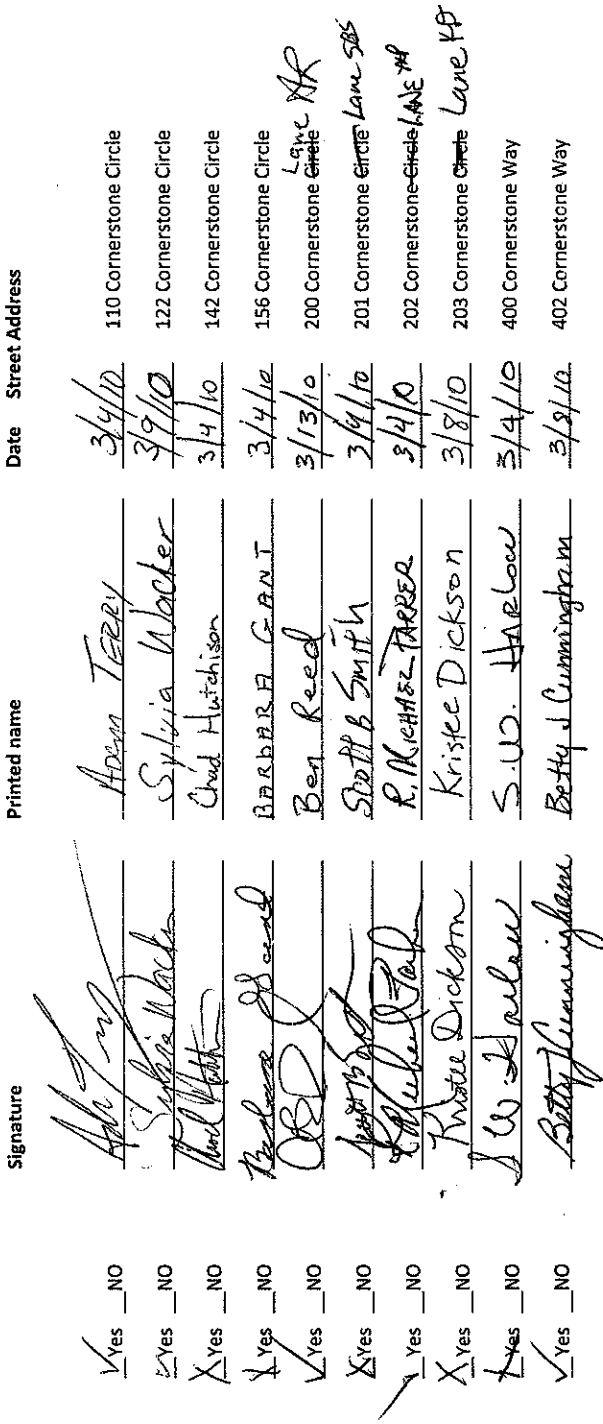 Signature Printed name Date Street Address
✓ Yes _NO Adam Terry 3/4/10 110 Cornerstone Circle
✓ Yes _NO Sylvia Wacker Sylvia Wacker 3/9/10 122 Cornerstone Circle
X Yes _NO Chad Hutchison 3/4/10 142 Cornerstone Circle
X Yes _NO Barbara Gant BARBARA GANT 3/4/10 156 Cornerstone Circle
✓ Yes _NO Ben Reed 3/13/10 200 Cornerstone Circle Lane
X Yes _NO Scott B Smith 3/4/10 201 Cornerstone Circle Lane SBS
✓ Yes _NO R. MICHAEL 3/4/10 202 Cornerstone Circle LANE
X Yes _NO Kristee Dickson Kristee Dickson 3/8/10 203 Cornerstone Circle Lane KD
X Yes _NO S W Harlow S.W. HARLOW 3/4/10 400 Cornerstone Way
✓ Yes _NO Betty J Cunningham Betty J Cunningham 3/8/10 402 Cornerstone Way